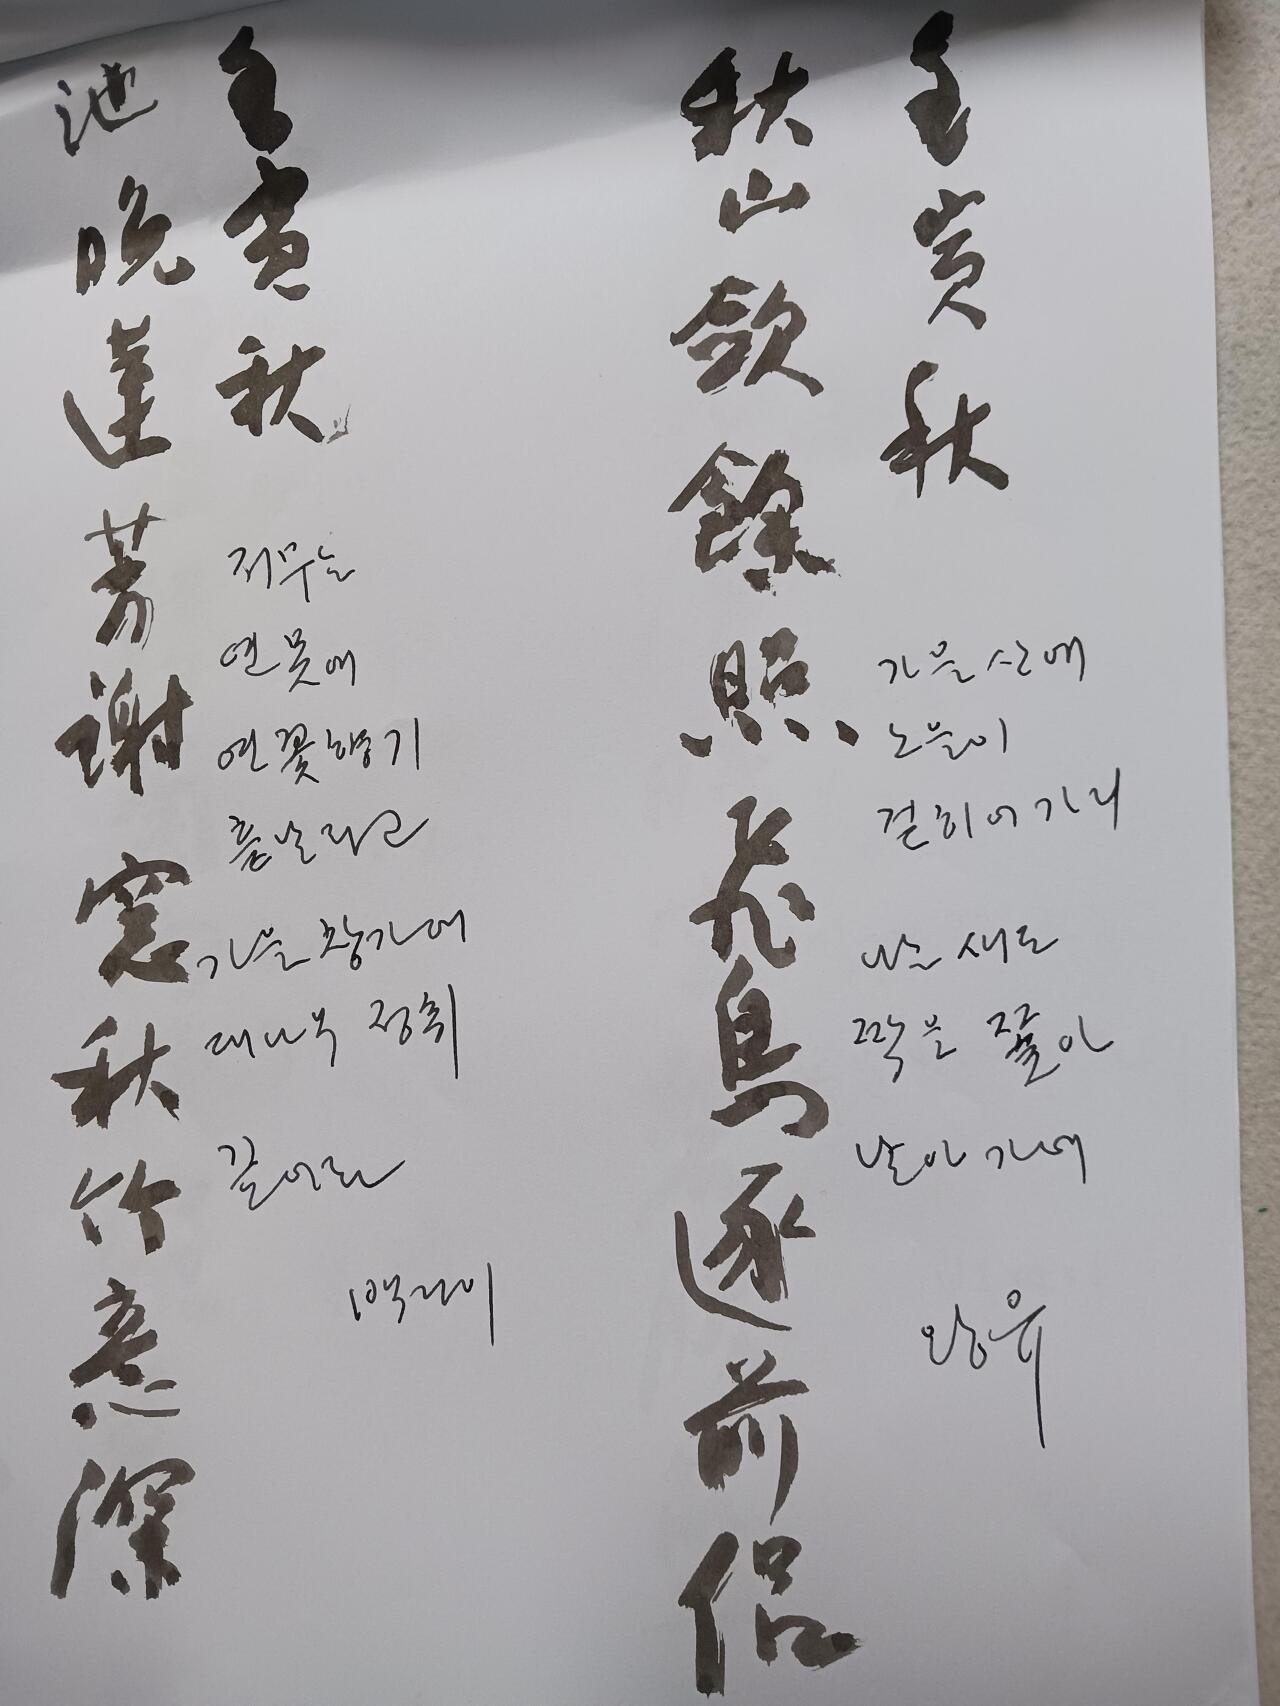 壬寅秋
秋山歛餘照飛鳥逐前侶
가을 산에
노을이
걷히어 가니
나는 새도
짝을 쫓아
날아 가네
왕유
壬寅秋
池晩蓮芳謝窓秋竹意深
저무는
연못에
연꽃향기
흩날리고
가을 창가에
대나무 정취
깊어라
백거이